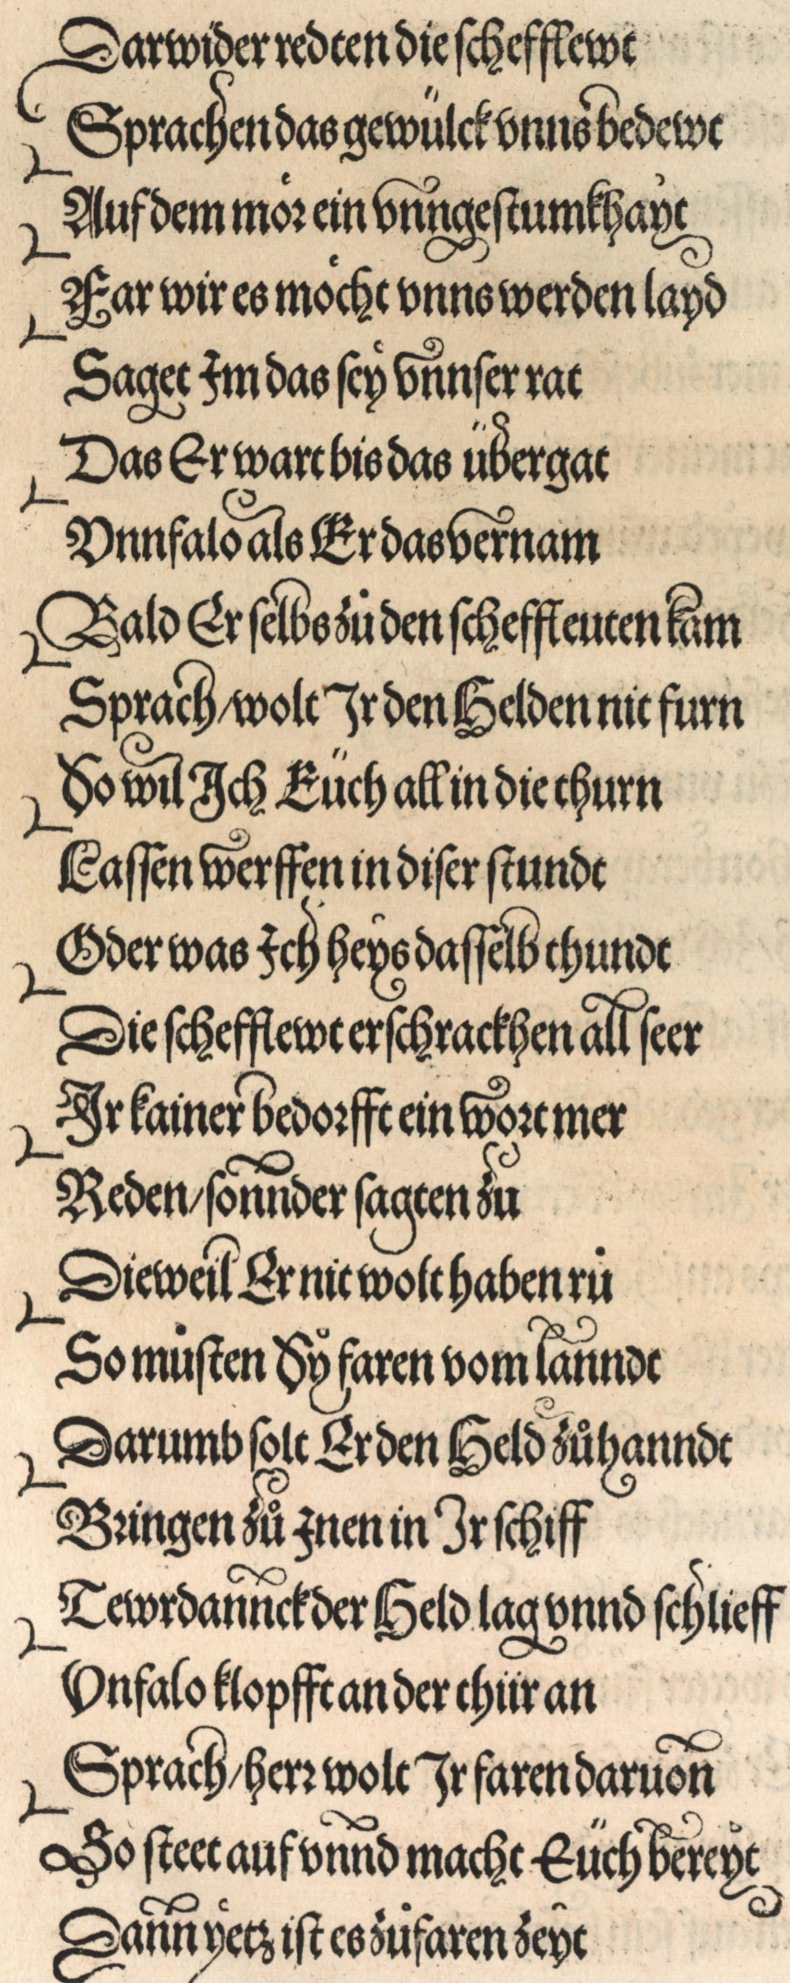 Darwider redten die schefflewt
Sprachen das gewülck vnns bedewt
Auf dem mör ein vnngestumkhayt
Far wir es möcht vnns werden layd
Saget Im das sey vnnser rat
Das Er wart bis das übergat
Vnnfalo als Er das vernam
Bald Er selbs zů den scheffleuten kam
Sprach/wolt Ir den Helden nit furn
So wil Ich Eüch all in die thurn
Lassen werffen in diser stundt
Oder was Ich heys dasselb thundt
Die schefflewt erschrackhen all seer
Ir kainer bedorfft ein wort mer
Reden/sonnder sagten zu
Dieweil Er nit wolt haben rů
So můsten Sy faren vom lanndt
Darumb solt Er den Held zůhanndt
Bringen zů Inen in Ir schiff
Tewrdannck der Held lag vnnd schlieff
Vnfalo klopfft an der thür an
Sprach/herr wolt Ir faren daruon
So steet auf vnnd macht Eüch bereyt
Dann yetz ist es zůfaren zeyt